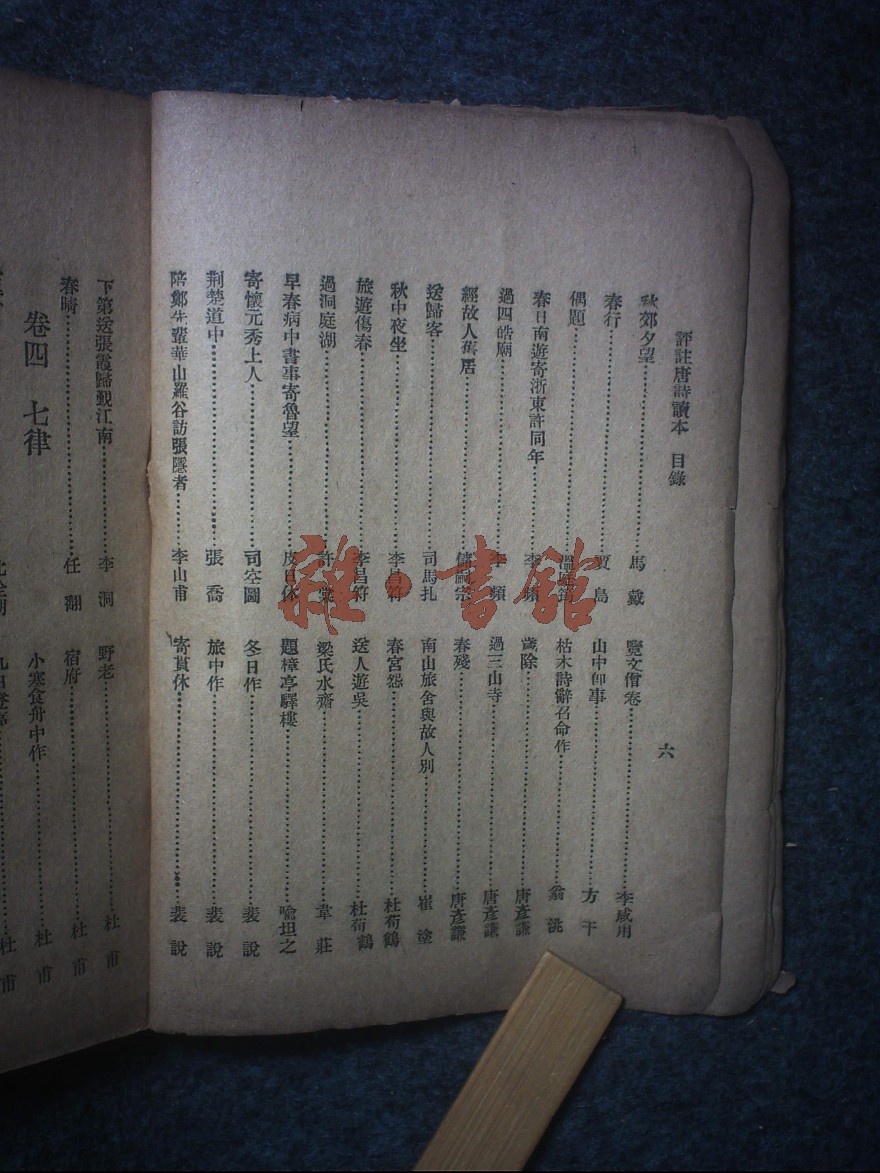 評註唐詩讀本 目錄
六
秋郊夕望……馬戴
春行……賈島
偶題……溫庭筠
春日南遊寄浙東許同年……李頻
過四皓廟……李頻
經故人舊居……儲嗣宗
送歸客……司馬扎
秋中夜坐……李昌符
旅遊傷春……李昌符
過洞庭湖……許棠
早春病中書事寄魯望……皮日休
寄懷元秀上人……司空圖
荆楚道中……張喬
陪鄭先輩華山羅谷訪張隱者……李山甫
覽文僧卷……李咸用
山中卽事……方干
枯木詩辭召命作……翁洮
歲除……唐彥謙
過三山寺……唐彥謙
春殘……唐彥謙
南山旅舍與故人別……崔塗
春宮怨……杜荀鶴
送人遊吳……杜荀鶴
梁氏水齋……韋莊
題樟亭驛樓……喻坦之
冬日作……裴說
旅中作……裴說
寄貫休……裴說
下第送張霞歸覲江南……李洞
春晴……任翻
野老……杜甫
宿府……杜甫
小寒食舟中作……杜甫
卷四 七律
杜甫
雜·書館